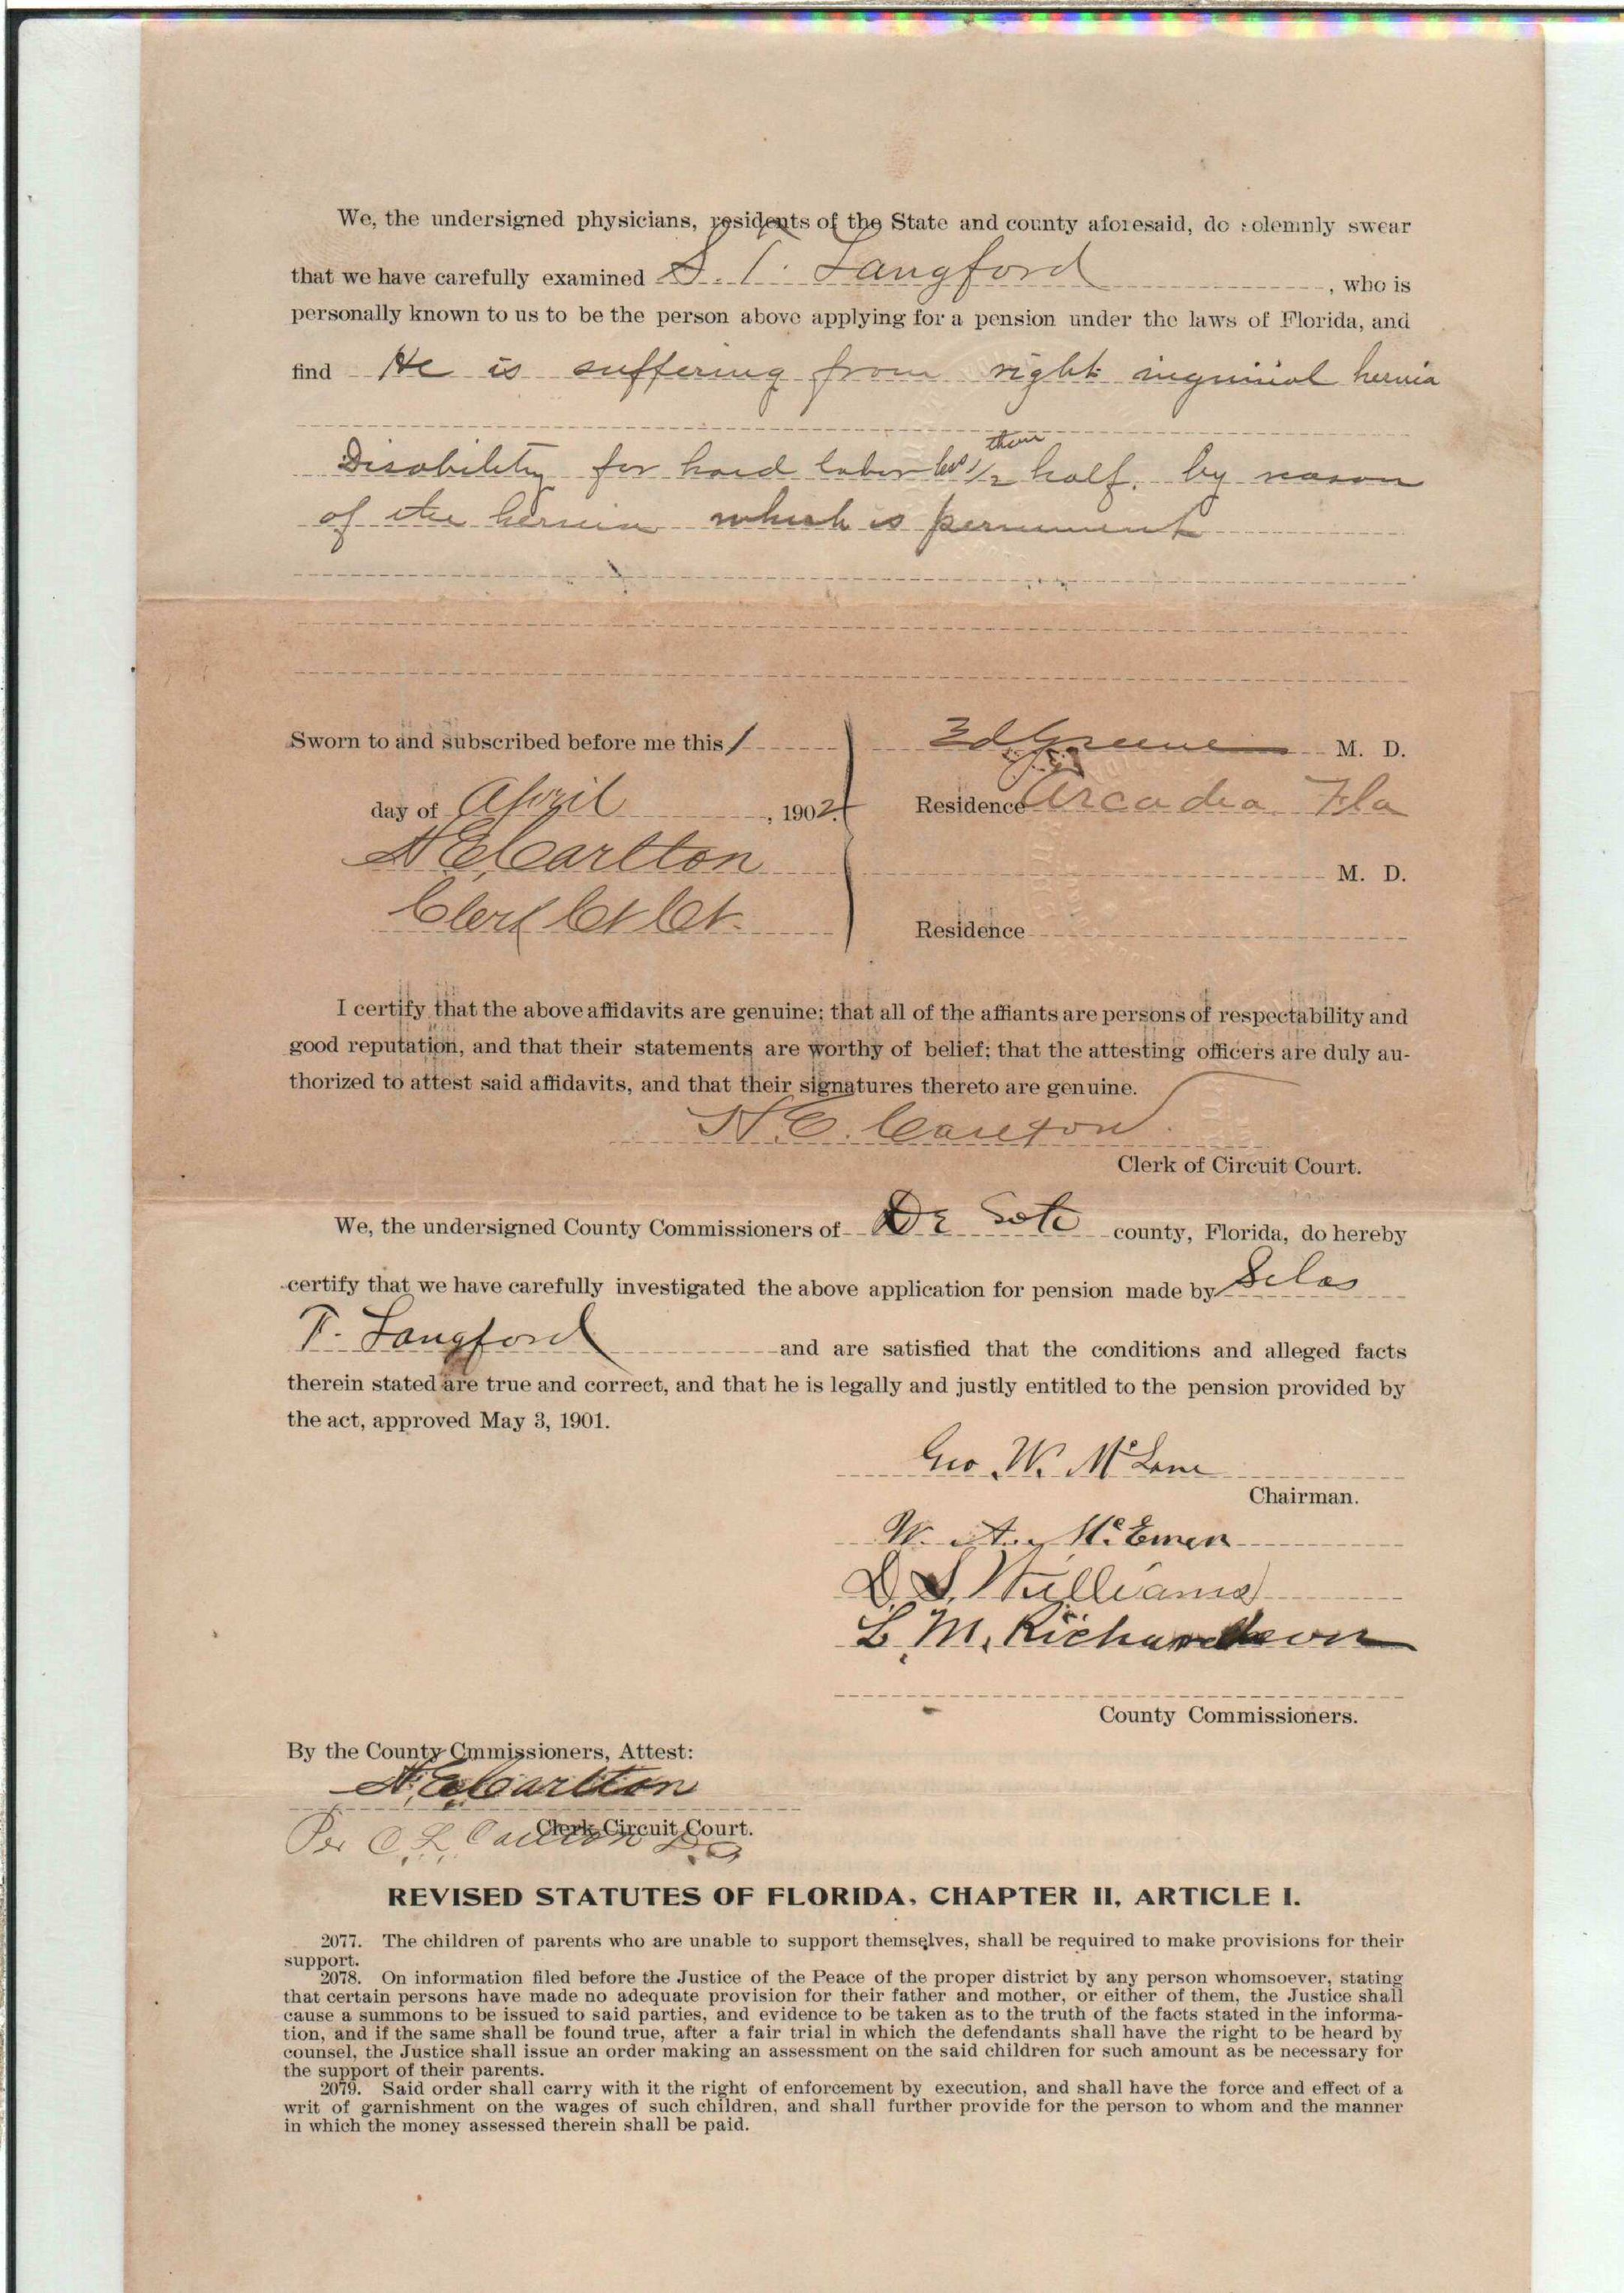 We, the undersigned physicians, residents of the State and county aforesaid, do solemnly swear
that we have carefully examined S. T. Langford, who is
personally known to us to be the person above applying for a pension under the laws of Florida, and
find He is suffering from right inguinal hernia
than
Disability for hard labor less 1/2 half. by reason
of the hernia which is permanent
Sworn to and subscribed before me this 1
M. D.
day of April, 1902.
Residence Arcadia Fla
A E Carlton
M. D.
Clerk Ct Ct.
Residence
I certify that the above affidavits are genuine; that all of the affiants are persons of respectability and
good reputation, and that their statements are worthy of belief; that the attesting officers are duly au-
thorized to attest said affidavits, and that their signatures thereto are genuine.
Carlton
Clerk of Circuit Court.
We, the undersigned County Commissioners of De Soto county, Florida, do hereby
certify that we have carefully investigated the above application for pension made by Silas
T. Langford and are satisfied that the conditions and alleged facts
therein stated are true and correct, and that he is legally and justly entitled to the pension provided by
the act, approved May 3, 1901.
Geo W. McLane
Chairman.
W. A. McEwen
D S. Williams
L. M. Richardson
County Commissioners.
By the County Cmmissioners, Attest:
A. E. Carlton
Clerk Circuit Court.
Per C. L. Carlton D.C.
REVISED STATUTES OF FLORIDA, CHAPTER II, ARTICLE I.
2077. The children of parents who are unable to support themselves, shall be required to make provisions for their
support.
2078. On information filed before the Justice of the Peace of the proper district by any person whomsoever, stating
that certain persons have made no adequate provision for their father and mother, or either of them, the Justice shall
cause a summons to be issued to said parties, and evidence to be taken as to the truth of the facts stated in the informa-
tion, and if the same shall be found true, after a fair trial in which the defendants shall have the right to be heard by
counsel, the Justice shall issue an order making an assessment on the said children for such amount as be necessary for
the support of their parents.
2079. Said order shall carry with it the right of enforcement by execution, and shall have the force and effect of a
writ of garnishment on the wages of such children, and shall further provide for the person to whom and the manner
in which the money assessed therein shall be paid.